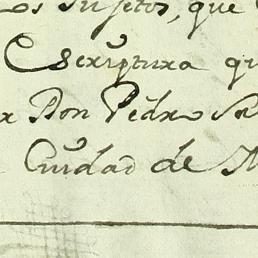 Sujetos, que
Escriptura qu
Don Pedro
Ciudad de